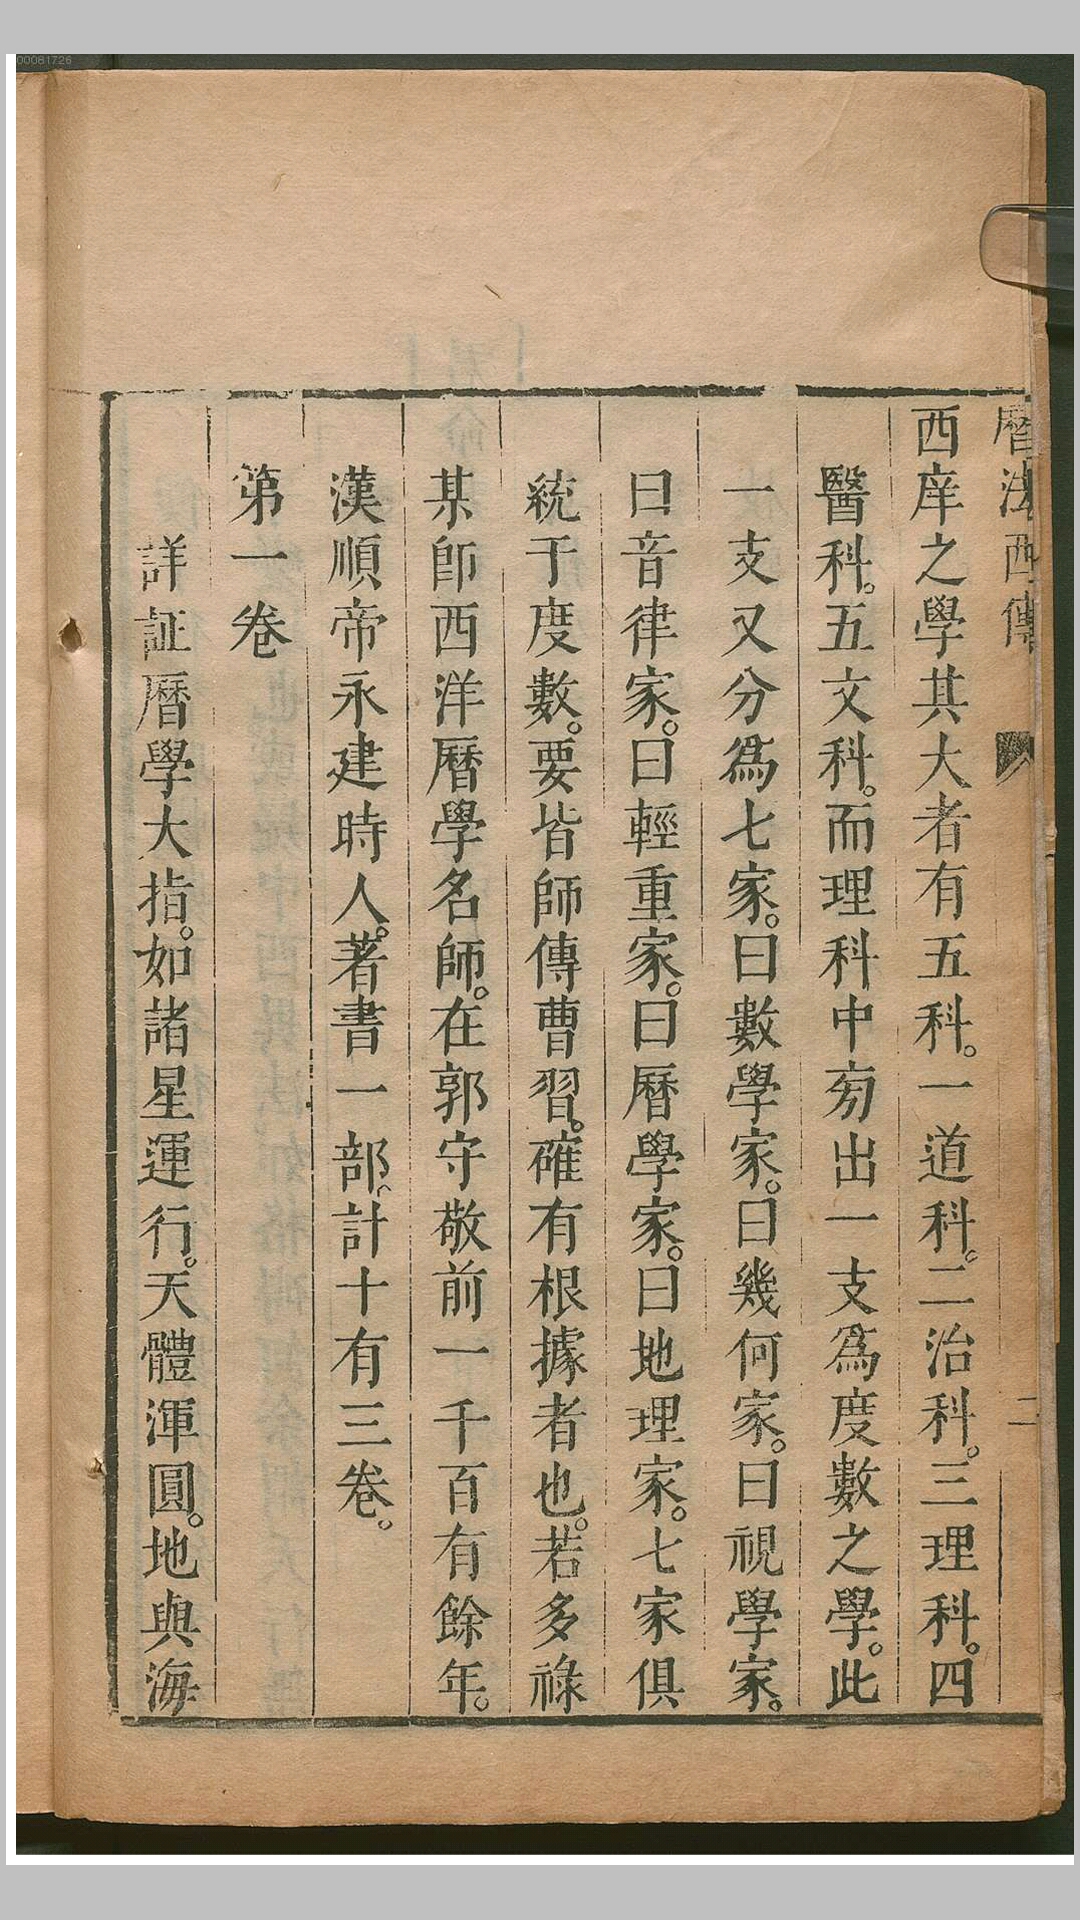 00081726
曆法西傳
二
西庠之學其大者有五科。一道科。二治科。三理科。四
醫科。五文科。而理科中旁出一支爲度數之學。此
一支又分爲七家。曰數學家。曰幾何家。曰視學家。
曰音律家。曰輕重家。曰曆學家。曰地理家。七家俱
統于度數。要皆師傳曹習。確有根據者也。若多祿
某卽西洋曆學名師。在郭守敬前一千百有餘年。
漢順帝永建時人。著書一部。計十有三卷。
第一卷
詳証曆學大指。如諸星運行。天體渾圓。地與海